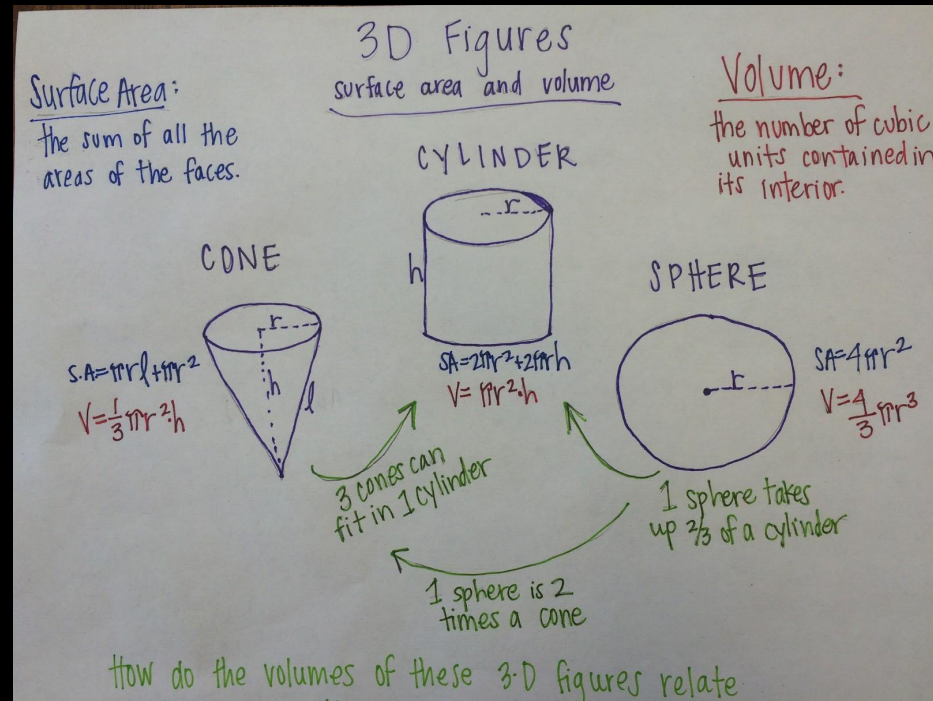 3D Figures
surface area and volume
Surface Area:
the sum of all the
areas of the faces.
Volume:
the number of cubic
units contained in
its interior.
CYLINDER
r
h
SA=2πr²+2πrh
V= πr²·h
CONE
r
h
l
S.A=πrl+πr²
V=1/3πr²·h
SPHERE
r
SA=4πr²
V=4/3πr³
3 cones can
fit in 1 cylinder
1 sphere takes
up 2/3 of a cylinder
1 sphere is 2
times a cone
How do the volumes of these 3-D figures relate